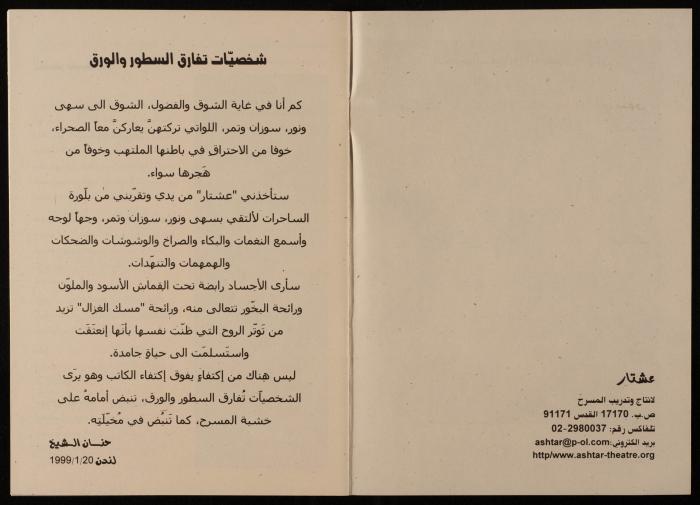 شخصيّات تفارق السطور والورق
كم أنا في غاية الشوق والفضول، الشوق الى سهى
ونور، سوزان وتمر، اللواتي تركتهنَّ يعاركنَّ معاً الصحراء،
خوفا من الاحتراق في باطنها الملتهب وخوفاً من
هَجرها سواء.
ستأخذني "عشتار" من يدي وتقرّبني من بلّورة
الساحرات لألتقي بسهى ونور، سوزان وتمر، وجهاً لوجه
وأسمع النغمات والبكاء والصراخ والوشوشات والضحكات
والهمهمات والتنهّدات.
سأرى الأجساد رابضة تحت القماش الأسود والملوّن
ورائحة البخّور تتعالى منه، ورائحة "مسك الغزال" تزيد
من تَوتّر الروح التي ظنّت نفسها بأنّها إنعتَقَت
واستَسلمَت الى حياةٍ جامدة.
ليس هناك من إكتفاءٍ يفوق إكتفاء الكاتب وهو يرَى
الشخصيّات تُفارق السطور والورق، تنبض أمامهُ على
خشبة المسرح، كما تَنبُض في مُخيّلتِه.
حنان الشيخ
لندن 1999/1/20
عشتار
لانتاج وتدريب المسرح
ص.ب. 17170 القدس 91171
تلفاكس رقم: 02-2980037
بريد الكتروني:ashtar@p-ol.com
http/www.ashtar-theatre.org